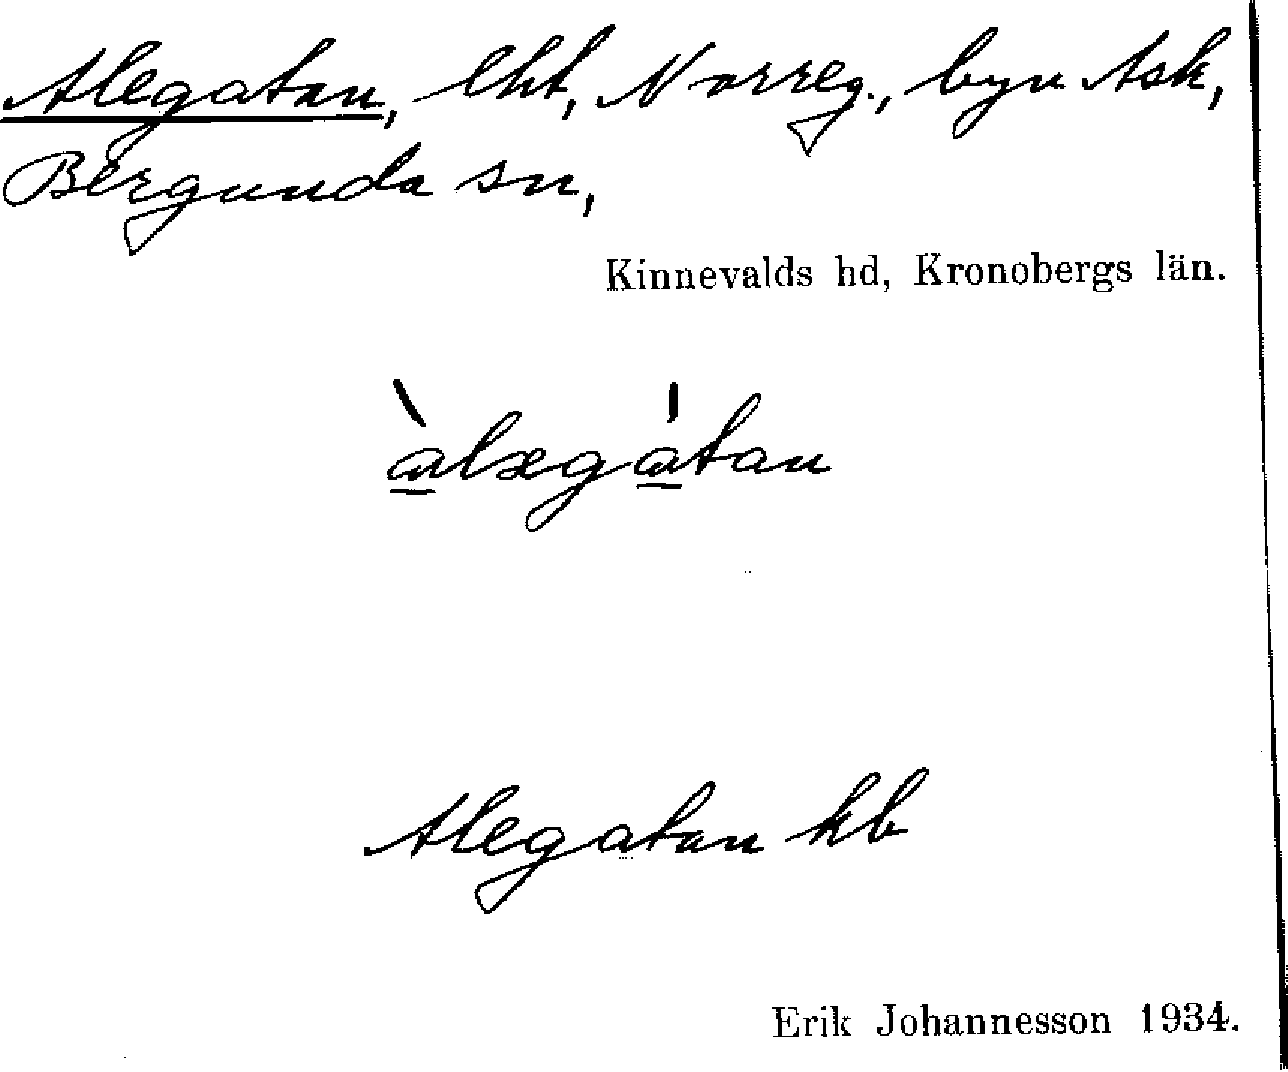 Alegatan, lht, Norreg., byn Ask,
Bergunda sn,
Kinnevalds hd, Kronobergs län.
àlægátan
Alegatan kb
Erik Johannesson 1934.